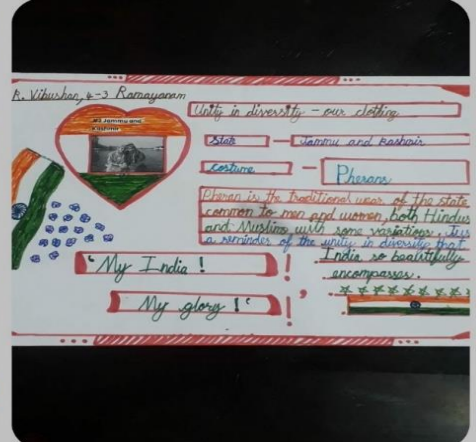 R. Vibushan, 4-3 Ramayanam
#3 Jammu and
Kashmir
Unity in diversity - our clothing
State - Jammu and Kashmir
Costume - Pherans
Pheran is the traditional wear of the state
common to men and women, both Hindus
and Muslims with some variations. It is
a reminder of the unity in diversity that
India so beautifully
encompasses.
"My India !
My glory !"